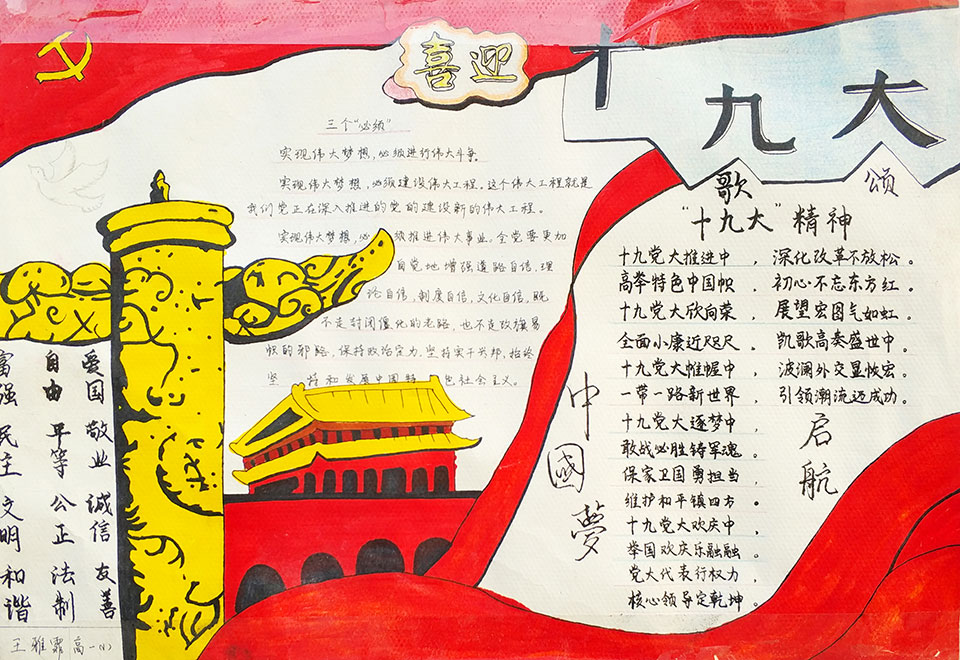 喜迎
十九大
三个"必须"
实现伟大梦想,必须进行伟大斗争。
实现伟大梦想,必须建设伟大工程。这个伟大工程就是
我们党正在深入推进的党的建设新的伟大工程。
实现伟大梦想,必须推进伟大事业。全党要更加
自觉地增强道路自信,理
论自信,制度自信,文化自信,既
不走封闭僵化的老路,也不走改旗易
帜的邪路,保持政治定力,坚持实干兴邦,始终
坚持和发展中国特色社会主义。
歌颂
"十九大"精神
十九党大推进中,深化改革不放松。
高举特色中国帜,初心不忘东方红。
十九党大欣向荣,展望宏图气如虹。
全面小康近咫尺,凯歌高奏盛世中。
十九党大帷幄中,波澜外交显恢宏。
一带一路新世界,引领潮流迈成功。
十九党大逐梦中,
敢战必胜铸军魂。
保家卫国勇担当,
维护和平镇四方。
十九党大欢庆中,
举国欢庆乐融融。
党大代表行权力,
核心领导定乾坤。
启航
中國夢
富强 民主 文明 和谐
自由 平等 公正 法制
爱国 敬业 诚信 友善
王雅霏 高一(1)